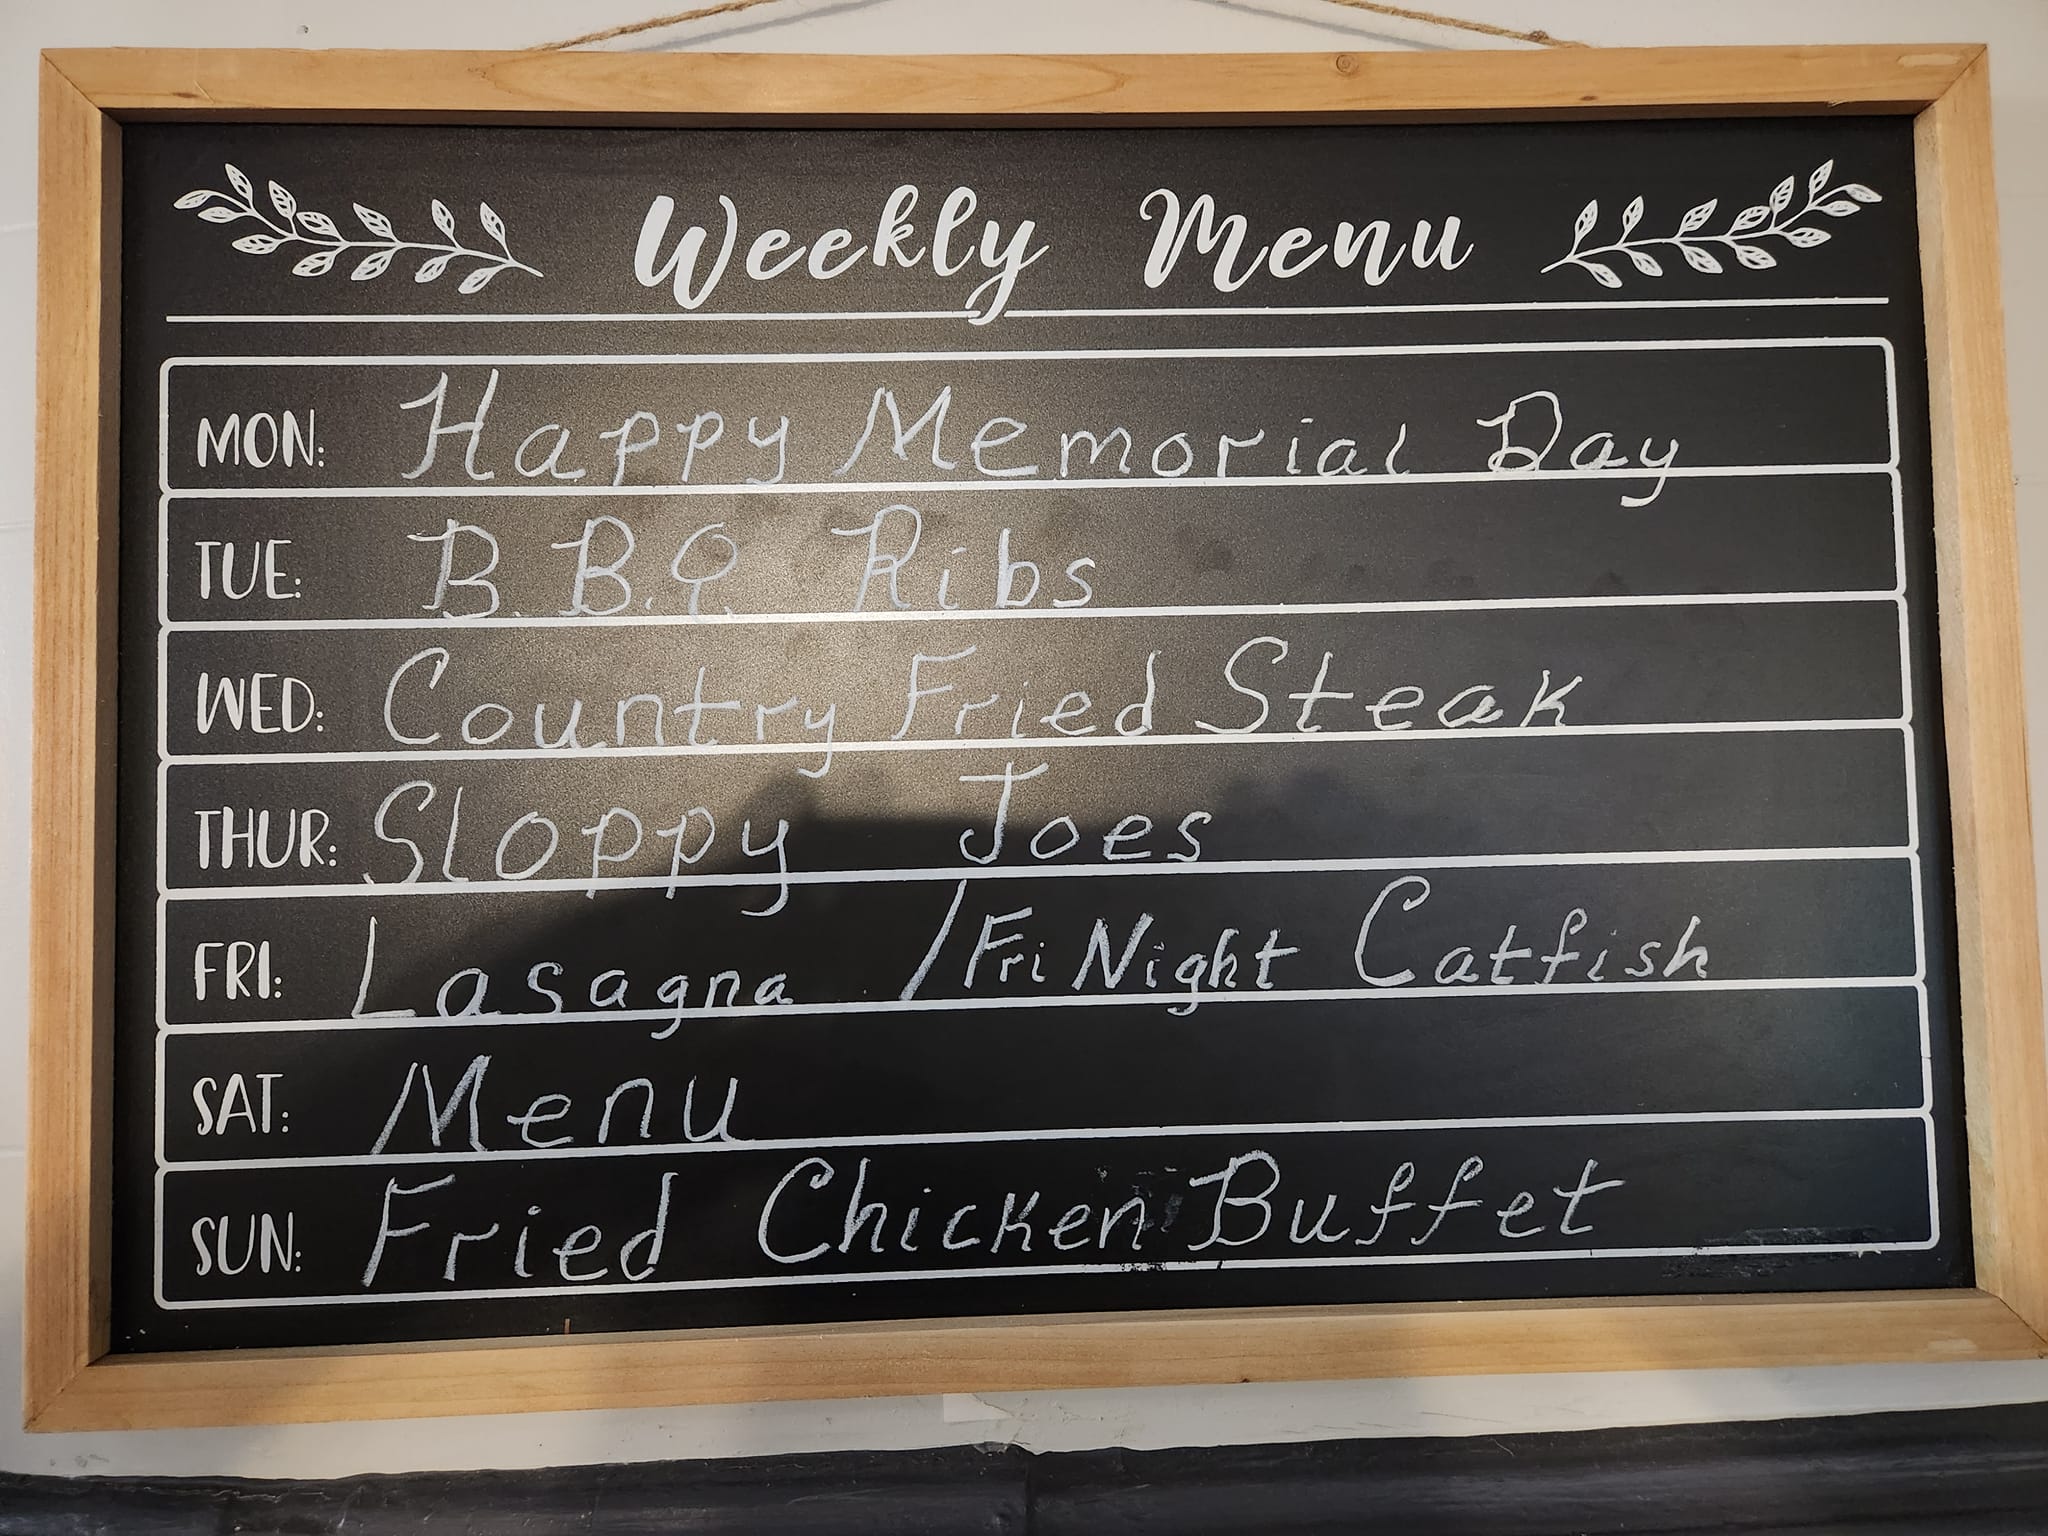 Weekly Menu
MON: Happy Memorial Day
TUE: B.B.Q Ribs
WED: Country Fried Steak
THUR: Sloppy Joes
FRI: Lasagna / Fri Night Catfish
SAT: Menu
SUN: Fried Chicken Buffet